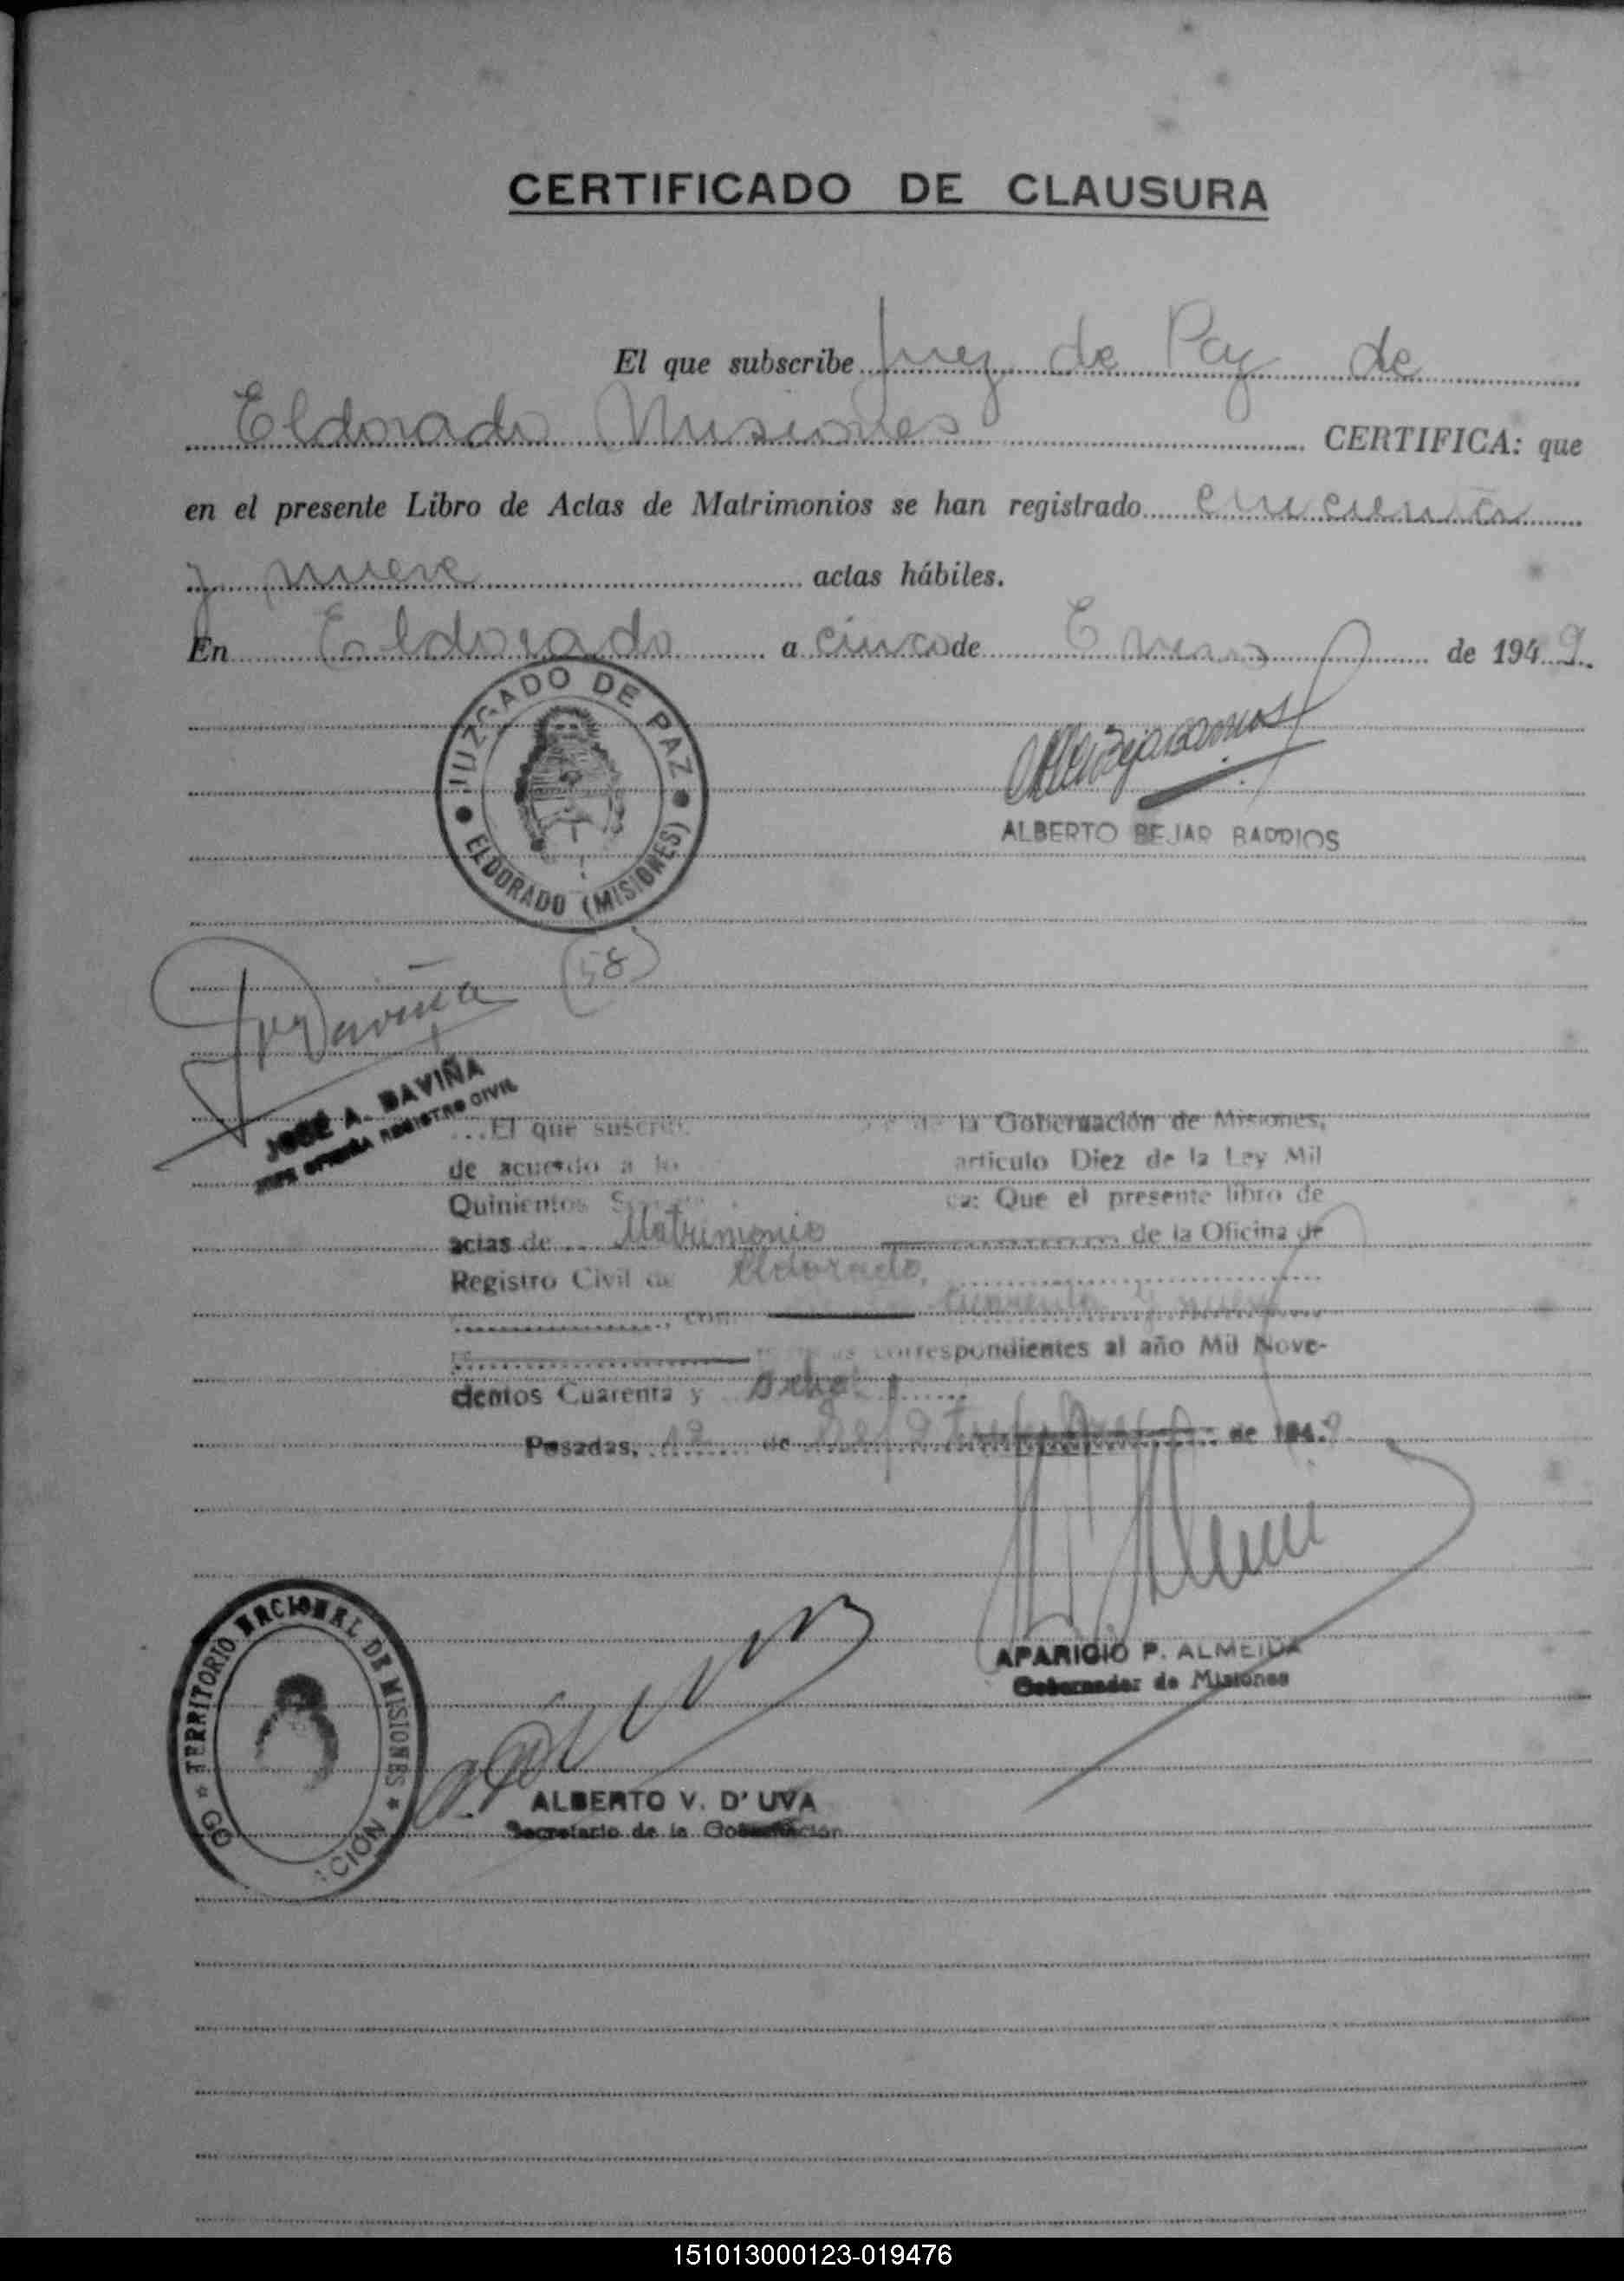 CERTIFICADO DE CLAUSURA
El que subscribe Juez de Paz de
Eldorado Misiones CERTIFICA: que
en el presente Libro de Actas de Matrimonios se han registrado cincuenta
y nueve actas hábiles.
En Eldorado a cinco de Enero de 1949.
JUZGADO DE PAZ
ELDORADO (MISIONES)
ALBERTO BEJAR BARRIOS
(58)
JOSÉ A. DAVIÑA
JEFE OFICINA REGISTRO CIVIL
El que suscribe la Gobernación de Misiones,
de acuerdo a lo articulo Diez de la Ley Mil
Quinientos Que el presente libro de
actas de Matrimonio de la Oficina de
Registro Civil de Eldorado,
con cuarenta y nueve
correspondientes al año Mil Nove-
cientos Cuarenta y ocho
Posadas, 12 de de 1949
APARICIO P. ALMEIDA
Gobernador de Misiones
TERRITORIO NACIONAL DE MISIONES
GO CION
ALBERTO V. D' UVA
Secretario de la Gobernación
151013000123-019476